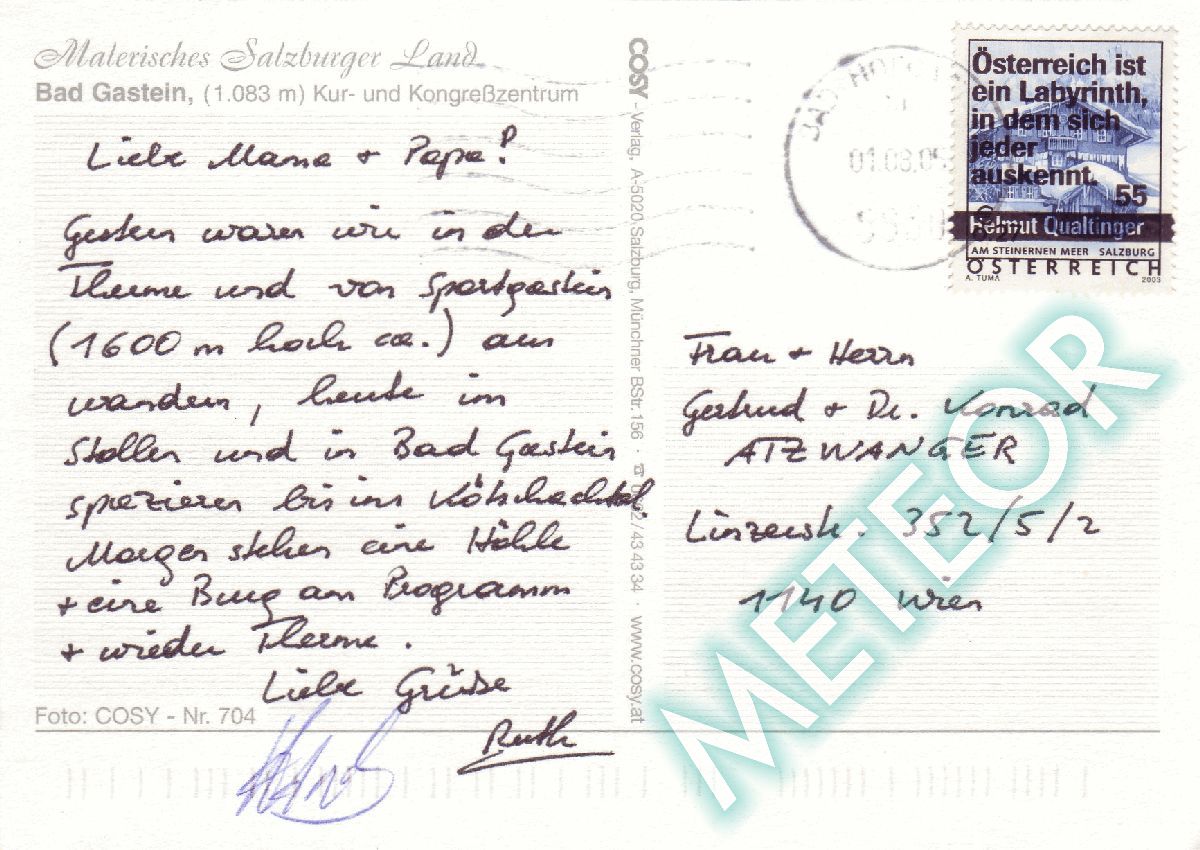 Malerisches Salzburger Land
Bad Gastein, (1.083 m) Kur- und Kongreßzentrum
Liebe Mama + Papa!
Gestern waren wir in der
Therme und von Sportgastein
(1600 m hoch ca.) aus
wandern, heute im
Stollen und in Bad Gastein
spazieren bis ins Kötschachtal.
Morgen stehen eine Höhle
+ eine Burg am Programm
+ wieder Therme.
Liebe Grüße
Ruth
Foto: COSY - Nr. 704
COSY - Verlag, A-5020 Salzburg, Münchner BStr. 156 · 43 43 34 · www.cosy.at
01.08.05
Österreich ist
ein Labyrinth,
in dem sich
jeder
auskennt.
55
Helmut Qualtinger
AM STEINERNEN MEER SALZBURG
ÖSTERREICH
A. TUMA 2003
Frau + Herrn
Gertrud + Dr. Konrad
ATZWANGER
Linzerstr. 352/5/2
1140 Wien
METEOR